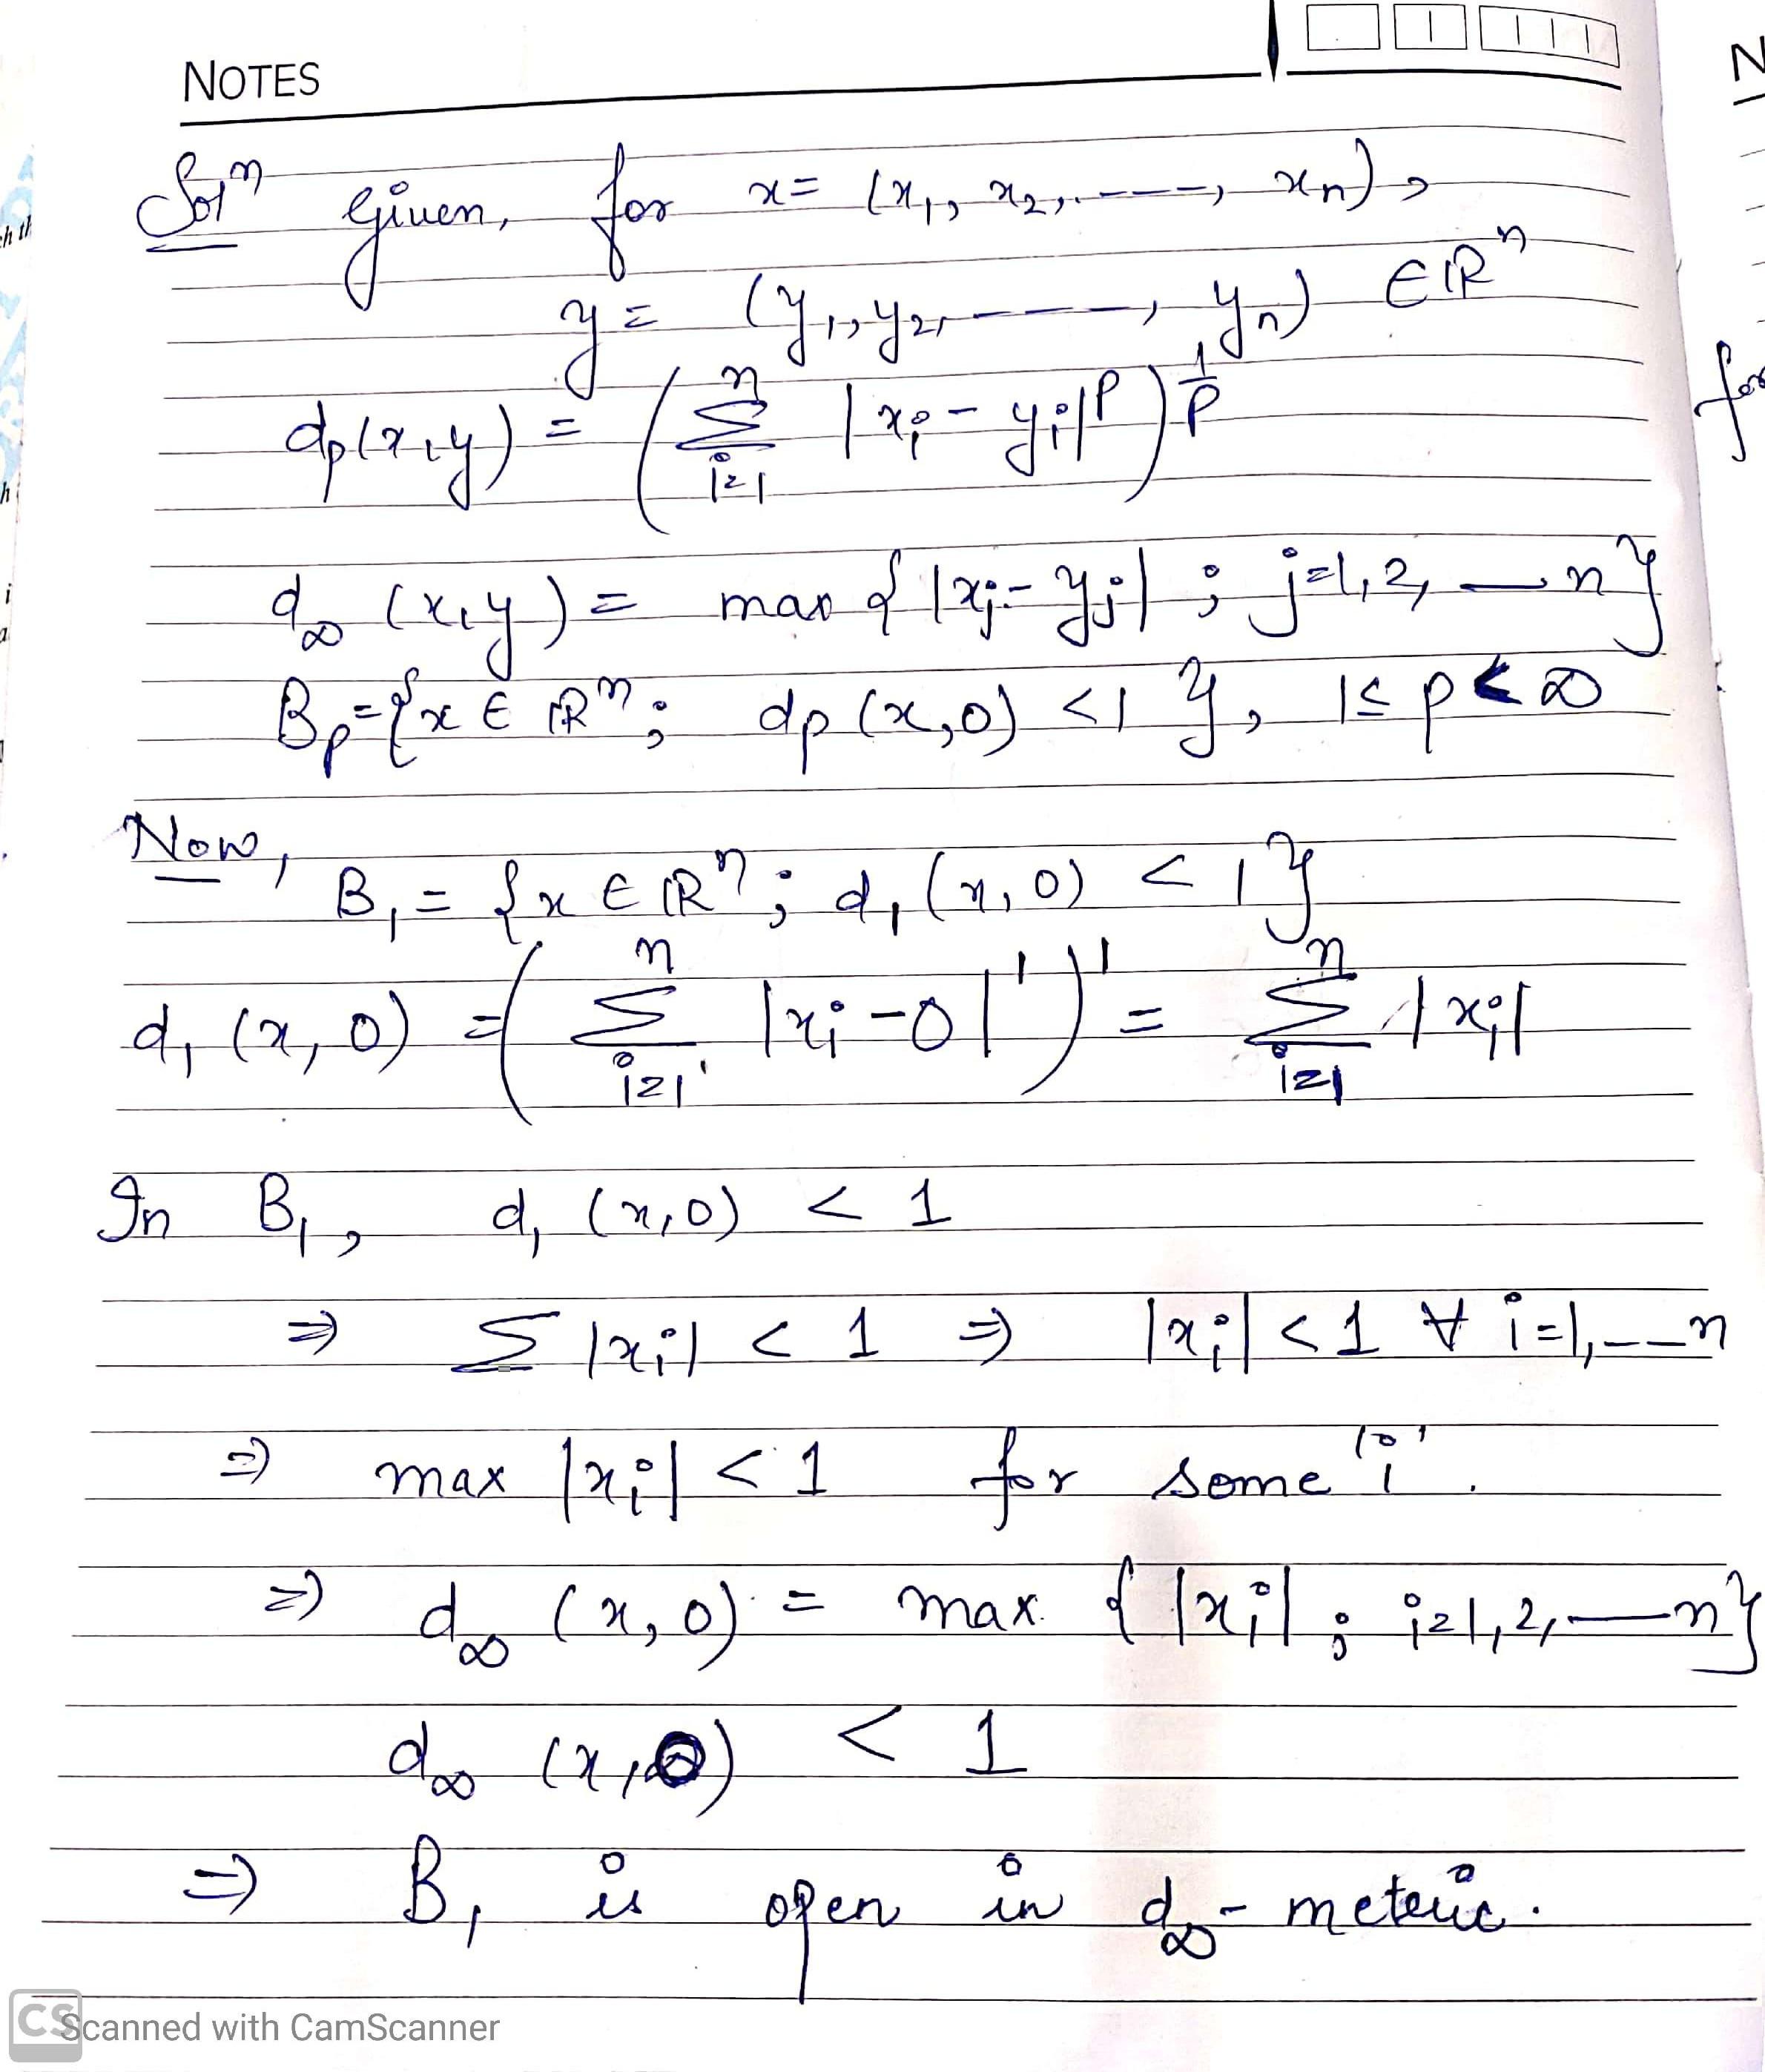 NOTES
Solⁿ Given, for x = (x₁, x₂, ----, xₙ),
y = (y₁, y₂, ----, yₙ) ∈ ℝⁿ
dp(x,y) = (Σⁿᵢ₌₁ |xᵢ - yᵢ|ᵖ)^(1/p)
d∞ (x,y) = max { |xⱼ - yⱼ| ; j=1,2, — n }
Bp = {x ∈ ℝⁿ ; dp (x,0) < 1 }, 1 ≤ p < ∞
Now,
B₁ = {x ∈ ℝⁿ ; d₁ (x,0) < 1 }
d₁ (x,0) = (Σⁿᵢ₌₁ |xᵢ - 0|¹)¹ = Σⁿᵢ₌₁ |xᵢ|
In B₁, d₁ (x,0) < 1
⇒ Σ |xᵢ| < 1 ⇒ |xᵢ| < 1 ∀ i=1,--n
⇒ max |xᵢ| < 1 for some 'i'.
⇒ d∞ (x,0) = max { |xᵢ| ; i=1,2,—n}
d∞ (x,0) < 1
⇒ B₁ is open in d∞ - meteric.
CS Scanned with CamScanner
N
for